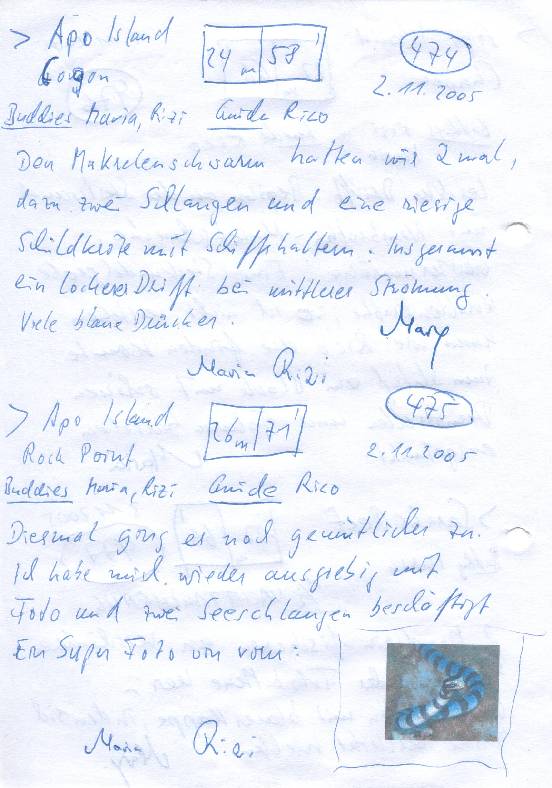 > Apo Island 24m 58' 474
Cogon 2.11.2005
Buddies Maria, Rizi Guide Rico
Den Makrelenschwarm hatten wir 2 mal,
dazu zwei Schlangen und eine riesige
Schildkröte mit Schiffshaltern. Insgesamt
ein lockerer Drift bei mittlerer Strömung.
Viele blaue Drücker.
Mary
Maria Rizi
> Apo Island 26m 71' 475
Rock Point 2.11.2005
Buddies Maria, Rizi Guide Rico
Diesmal ging es noch gemütlicher zu.
Ich habe mich wieder ausgiebig mit
Foto und zwei Seeschlangen beschäftigt
Ein Super Foto von vorn:
Maria Rizi